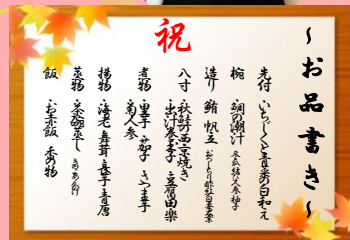 ～お品書き～
祝
先付 いちじくと青菜の白和え
椀 鯛の潮汁
造り 鮪 帆立
八寸 秋鮭西京焼き
出汁巻玉子 豆腐田楽
煮物 里芋 茄子 さつま芋
菊人参
揚物 海老 舞茸 長芋 青唐
蒸物 茶碗蒸し
飯 お赤飯 香の物